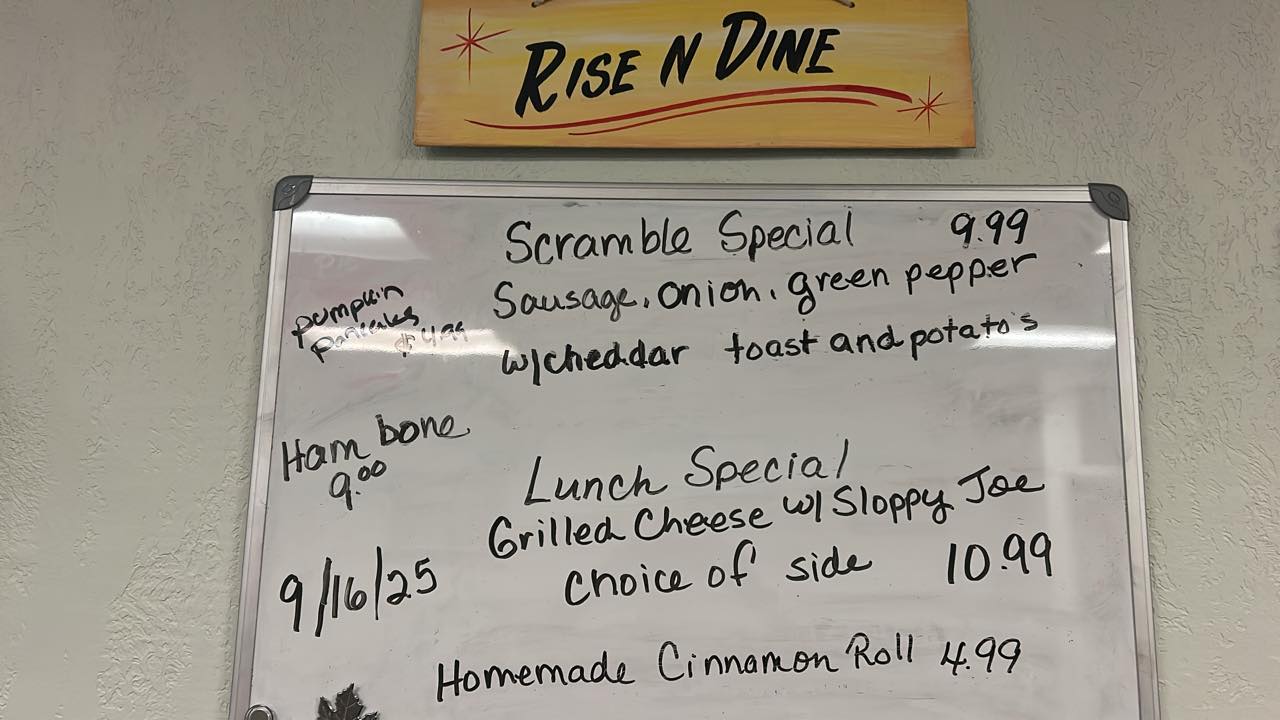 RISE N DINE
Scramble Special 9.99
Sausage, onion, green pepper
w/cheddar toast and potato's
pumpkin
pancakes
$4.99
Ham bone
9.00
Lunch Special
Grilled Cheese w/ Sloppy Joe
choice of side 10.99
9/16/25
Homemade Cinnamon Roll 4.99